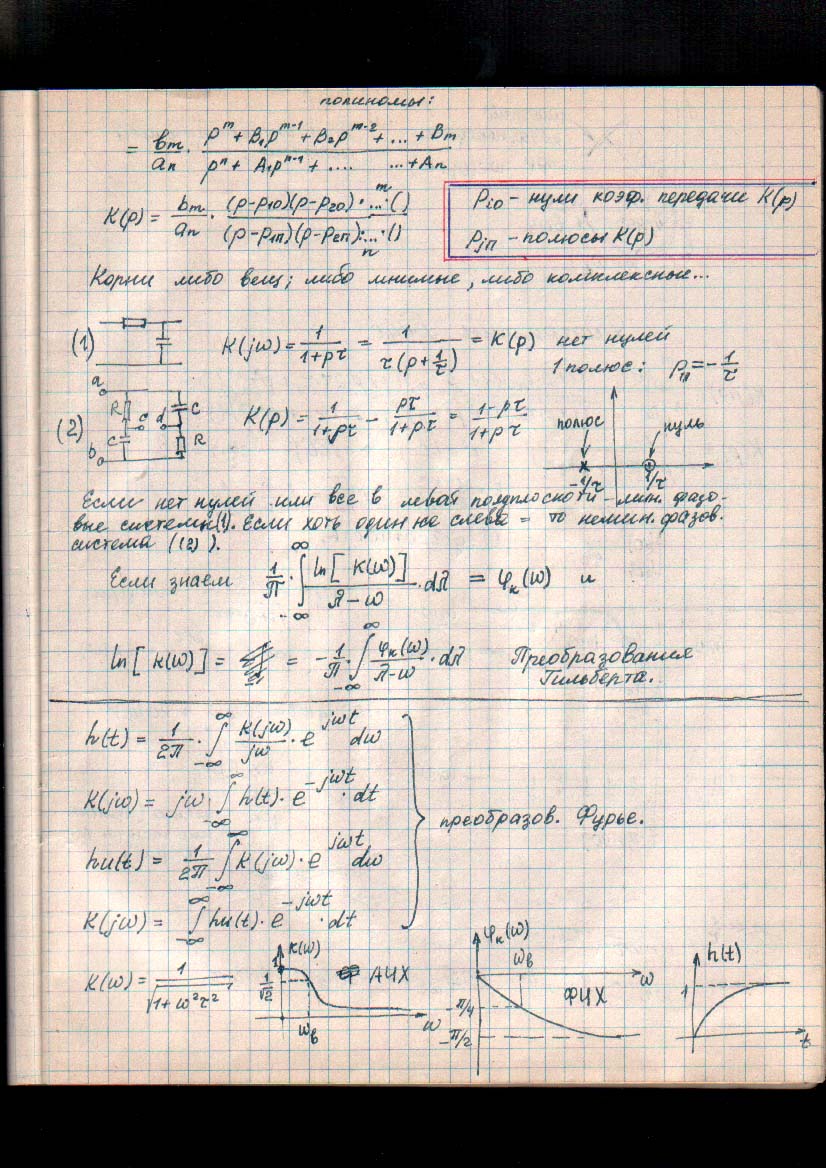 полиномы:
= bm/an · (p^m + B₁p^(m-1) + B₂p^(m-2) + ... + Bm)/(p^n + A₁p^(n-1) + .... ... + An)
K(p) = bm/an · ((p-p10)(p-p20)·...·())/((p-p1п)(p-p2п)·...·()) m n
Pi0 - нули коэф. передачи K(p)
Pjп - полюсы K(p)
Корни либо вещ; либо мнимые, либо комплексные...
(1) K(jω) = 1/(1+pτ) = 1/(τ(p+1/τ)) = K(p) нет нулей
1 полюс: p1п = -1/τ
(2) a b R C c d C R K(p) = 1/(1+pτ) - pτ/(1+pτ) = (1-pτ)/(1+pτ)
полюс нуль
-1/τ 1/τ
Если нет нулей или все в левой полуплоскоти - мин. фазо-
вые системы(1). Если хоть один не слева = то немин. фазов.
система ((2)).
Если знаем 1/π · ∫_{-∞}^{∞} ln[K(ω)]/(λ-ω) · dλ = φк(ω) и
ln[K(ω)] = = -1/π · ∫_{-∞}^{∞} φк(ω)/(λ-ω) · dλ Преобразования
Гильберта.
h(t) = 1/2π · ∫_{-∞}^{∞} K(jω)/jω · e^{jωt} dω
K(jω) = jω · ∫_{-∞}^{∞} h(t) · e^{-jωt} · dt
преобразов. Фурье.
hu(t) = 1/2π ∫_{-∞}^{∞} K(jω) · e^{jωt} dω
K(jω) = ∫_{-∞}^{∞} hu(t) · e^{-jωt} · dt
K(ω) = 1/√(1+ω²τ²)
K(ω) 1 1/√2 АЧХ ωв ω
φк(ω) ωв ω ФЧХ -π/4 -π/2
h(t) 1 t